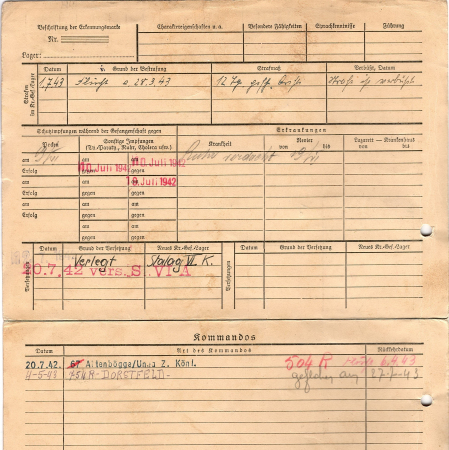 Beschriftung der Erkennungsmarke
Nr.
Lager:
Charaktereigenschaften u. a.
Besondere Fähigkeiten
Sprachkenntnisse
Führung
Strafen im Kr.-Gef.-Lager
Datum
Grund der Bestrafung
Strafmaß
Verbüßt, Datum
1.7.43
Flucht a. 28.3.43
12 Tg. gesch. Arrest
Schutzimpfungen während der Gefangenschaft gegen
Erkrankungen
Pocken
Sonstige Impfungen
(Ty.-Paraty., Ruhr, Cholera usw.)
Krankheit
Revier
von
bis
Lazarett — Krankenhaus
von
bis
am
am
am
gegen
gegen
10. Juli 1942
10. Juli 1942
Erfolg
am
am
gegen
gegen
19. Juli 1942
am
am
am
Erfolg
gegen
gegen
am
am
am
Erfolg
gegen
gegen
Versetzungen
Datum
Grund der Versetzung
Neues Kr.-Gef.-Lager
Versetzungen
Datum
Grund der Versetzung
Neues Kr.-Gef.-Lager
Verlegt
Stalag VI K.
20.7.42 vers. S VI A
Kommandos
Datum
Art des Kommandos
Rückkehrdatum
20.7.42.
Altenbögge/Unna Z. Köni.
504 R
6.4.43
4-5-43
754 R-DORSTFELD-
27-5-43